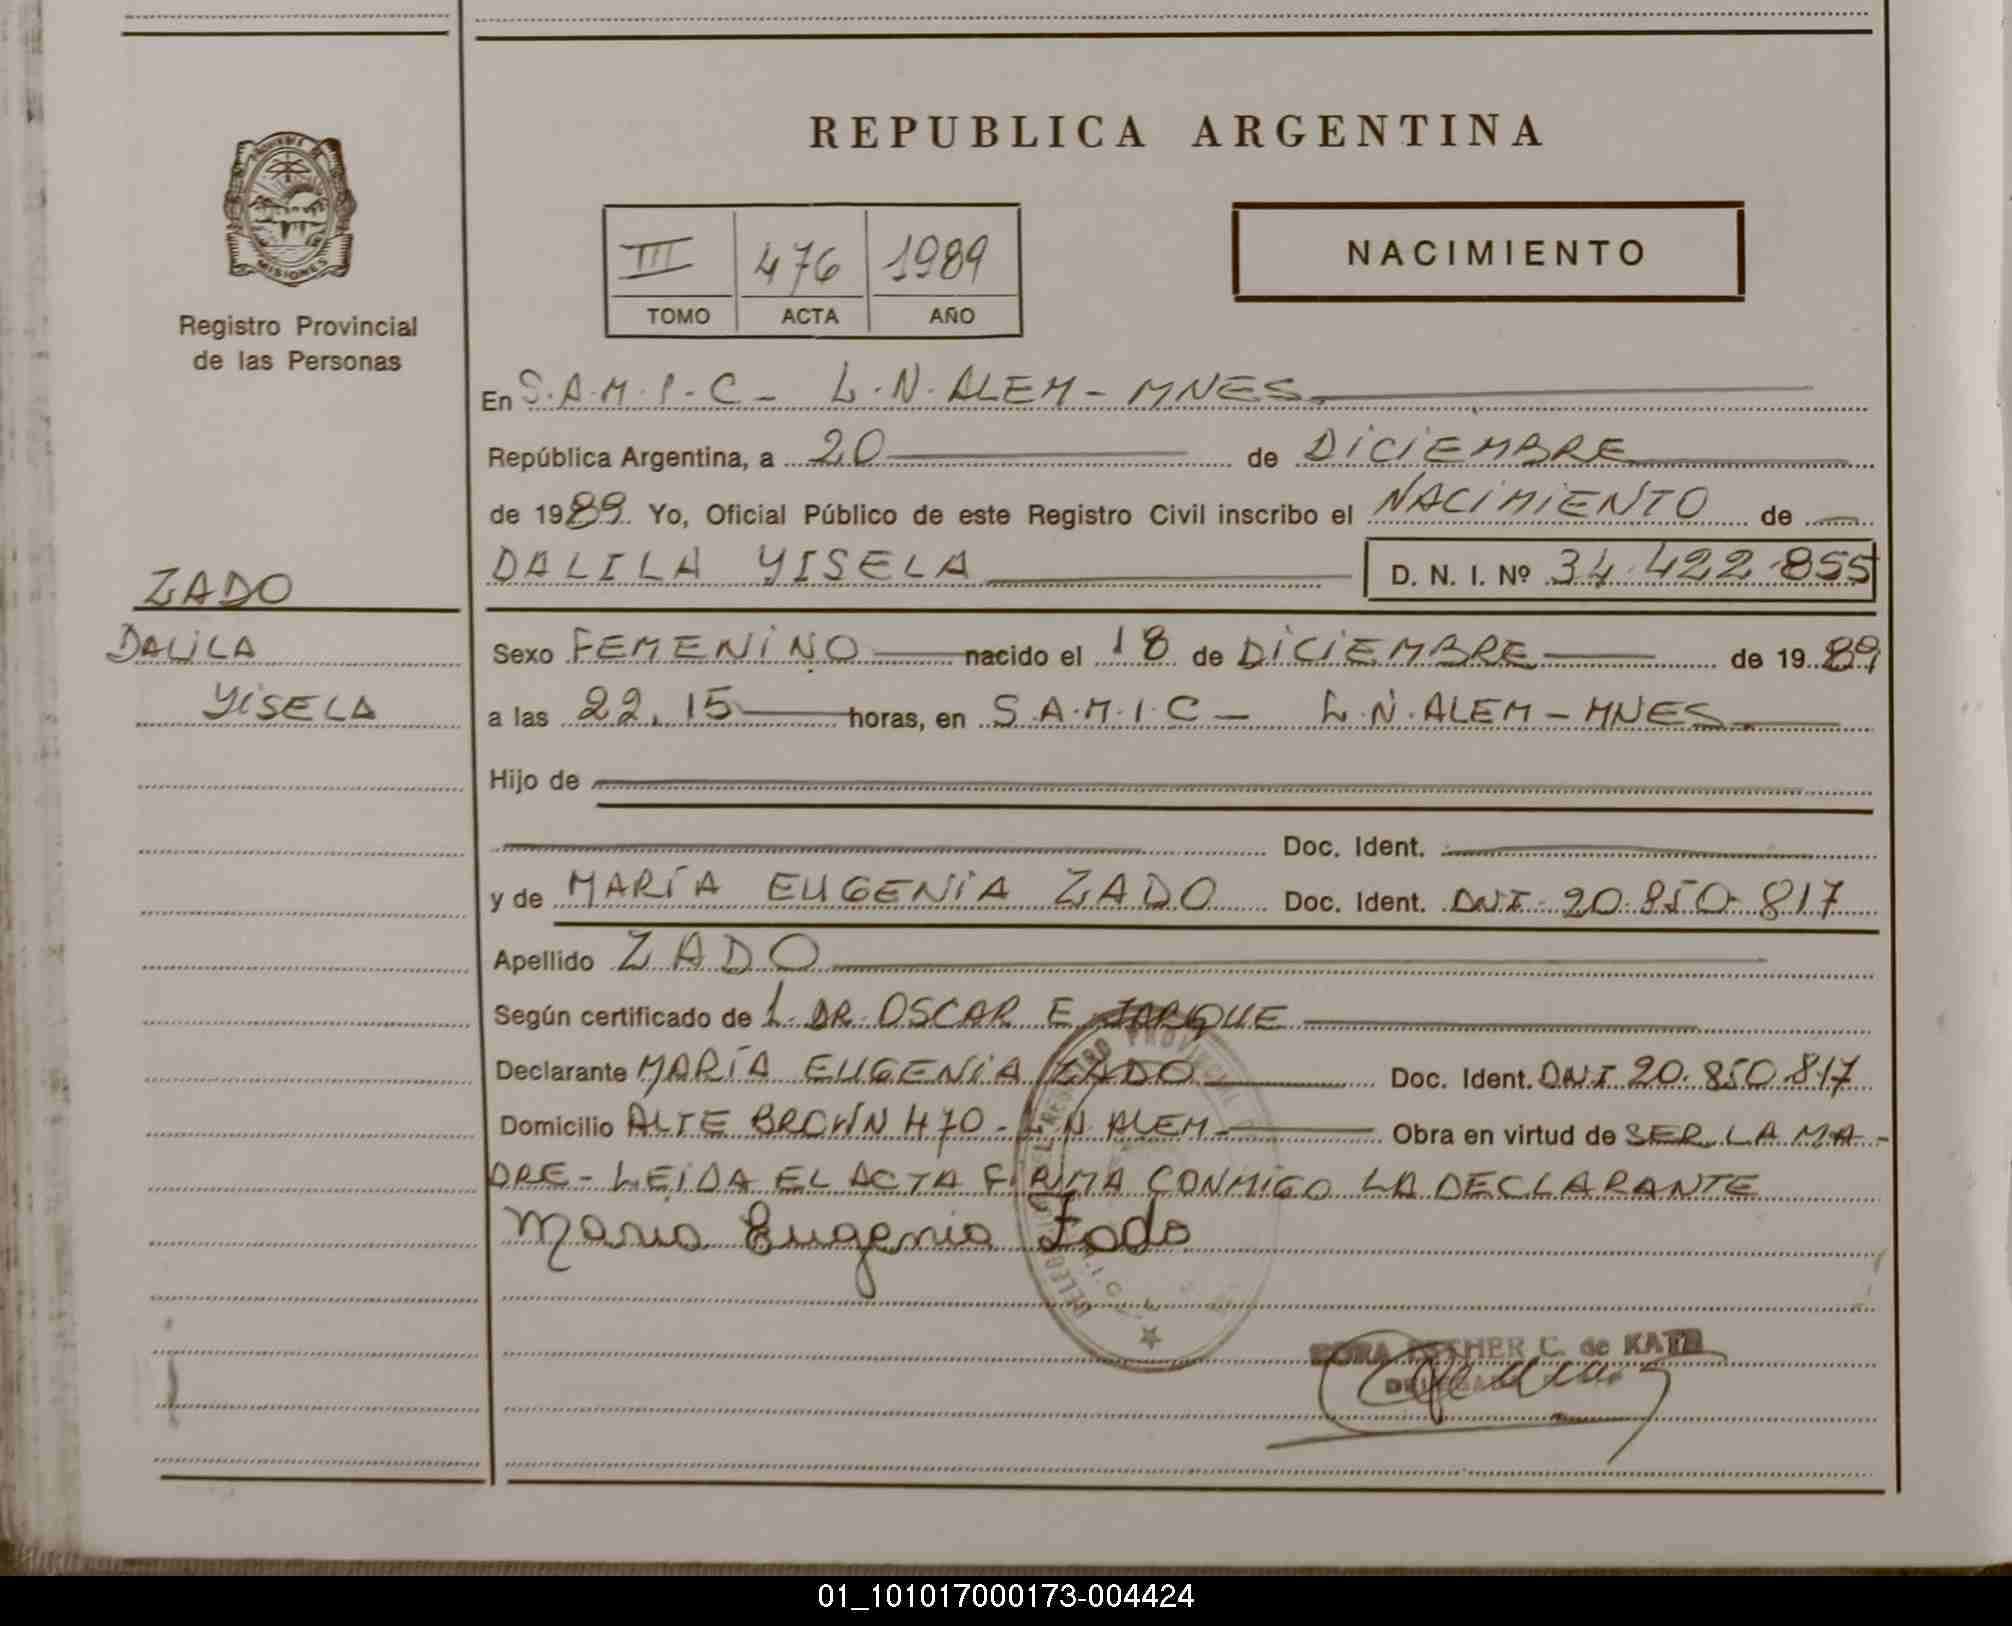 REPUBLICA ARGENTINA
MISIONES
Registro Provincial
de las Personas
III 476 1989
TOMO ACTA AÑO
NACIMIENTO
En S.A.M.I.C - L.N.ALEM - MNES
República Argentina, a 20 de DICIEMBRE
de 1989 Yo, Oficial Público de este Registro Civil inscribo el NACIMIENTO de
DALILA YISELA D. N. I. Nº 34.422.855
ZADO
DALILA
YISELA
Sexo FEMENINO nacido el 18 de DICIEMBRE de 1989
a las 22.15 horas, en S.A.M.I.C - L.N.ALEM - MNES
Hijo de
Doc. Ident.
y de MARÍA EUGENIA ZADO Doc. Ident. DNI 20.850.817
Apellido ZADO
Según certificado de L. DR. OSCAR E JARQUE
Declarante MARÍA EUGENIA ZADO Doc. Ident. DNI 20.850.817
Domicilio ALTE BROWN 470 - L.N ALEM - Obra en virtud de SER LA MA-
DRE - LEIDA EL ACTA FIRMA CONMIGO LA DECLARANTE
Maria Eugenia Zado
ESTHER C. de KATZ
01_101017000173-004424